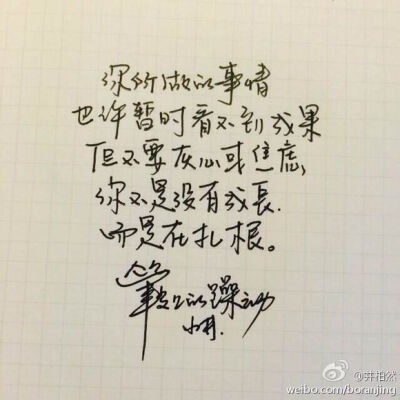 你所做的事情
也许暂时看不到成果
但不要灰心或焦虑,
你不是没有成長.
而是在扎根。
笔记的躁动
@井柏然
weibo.com/boranjing